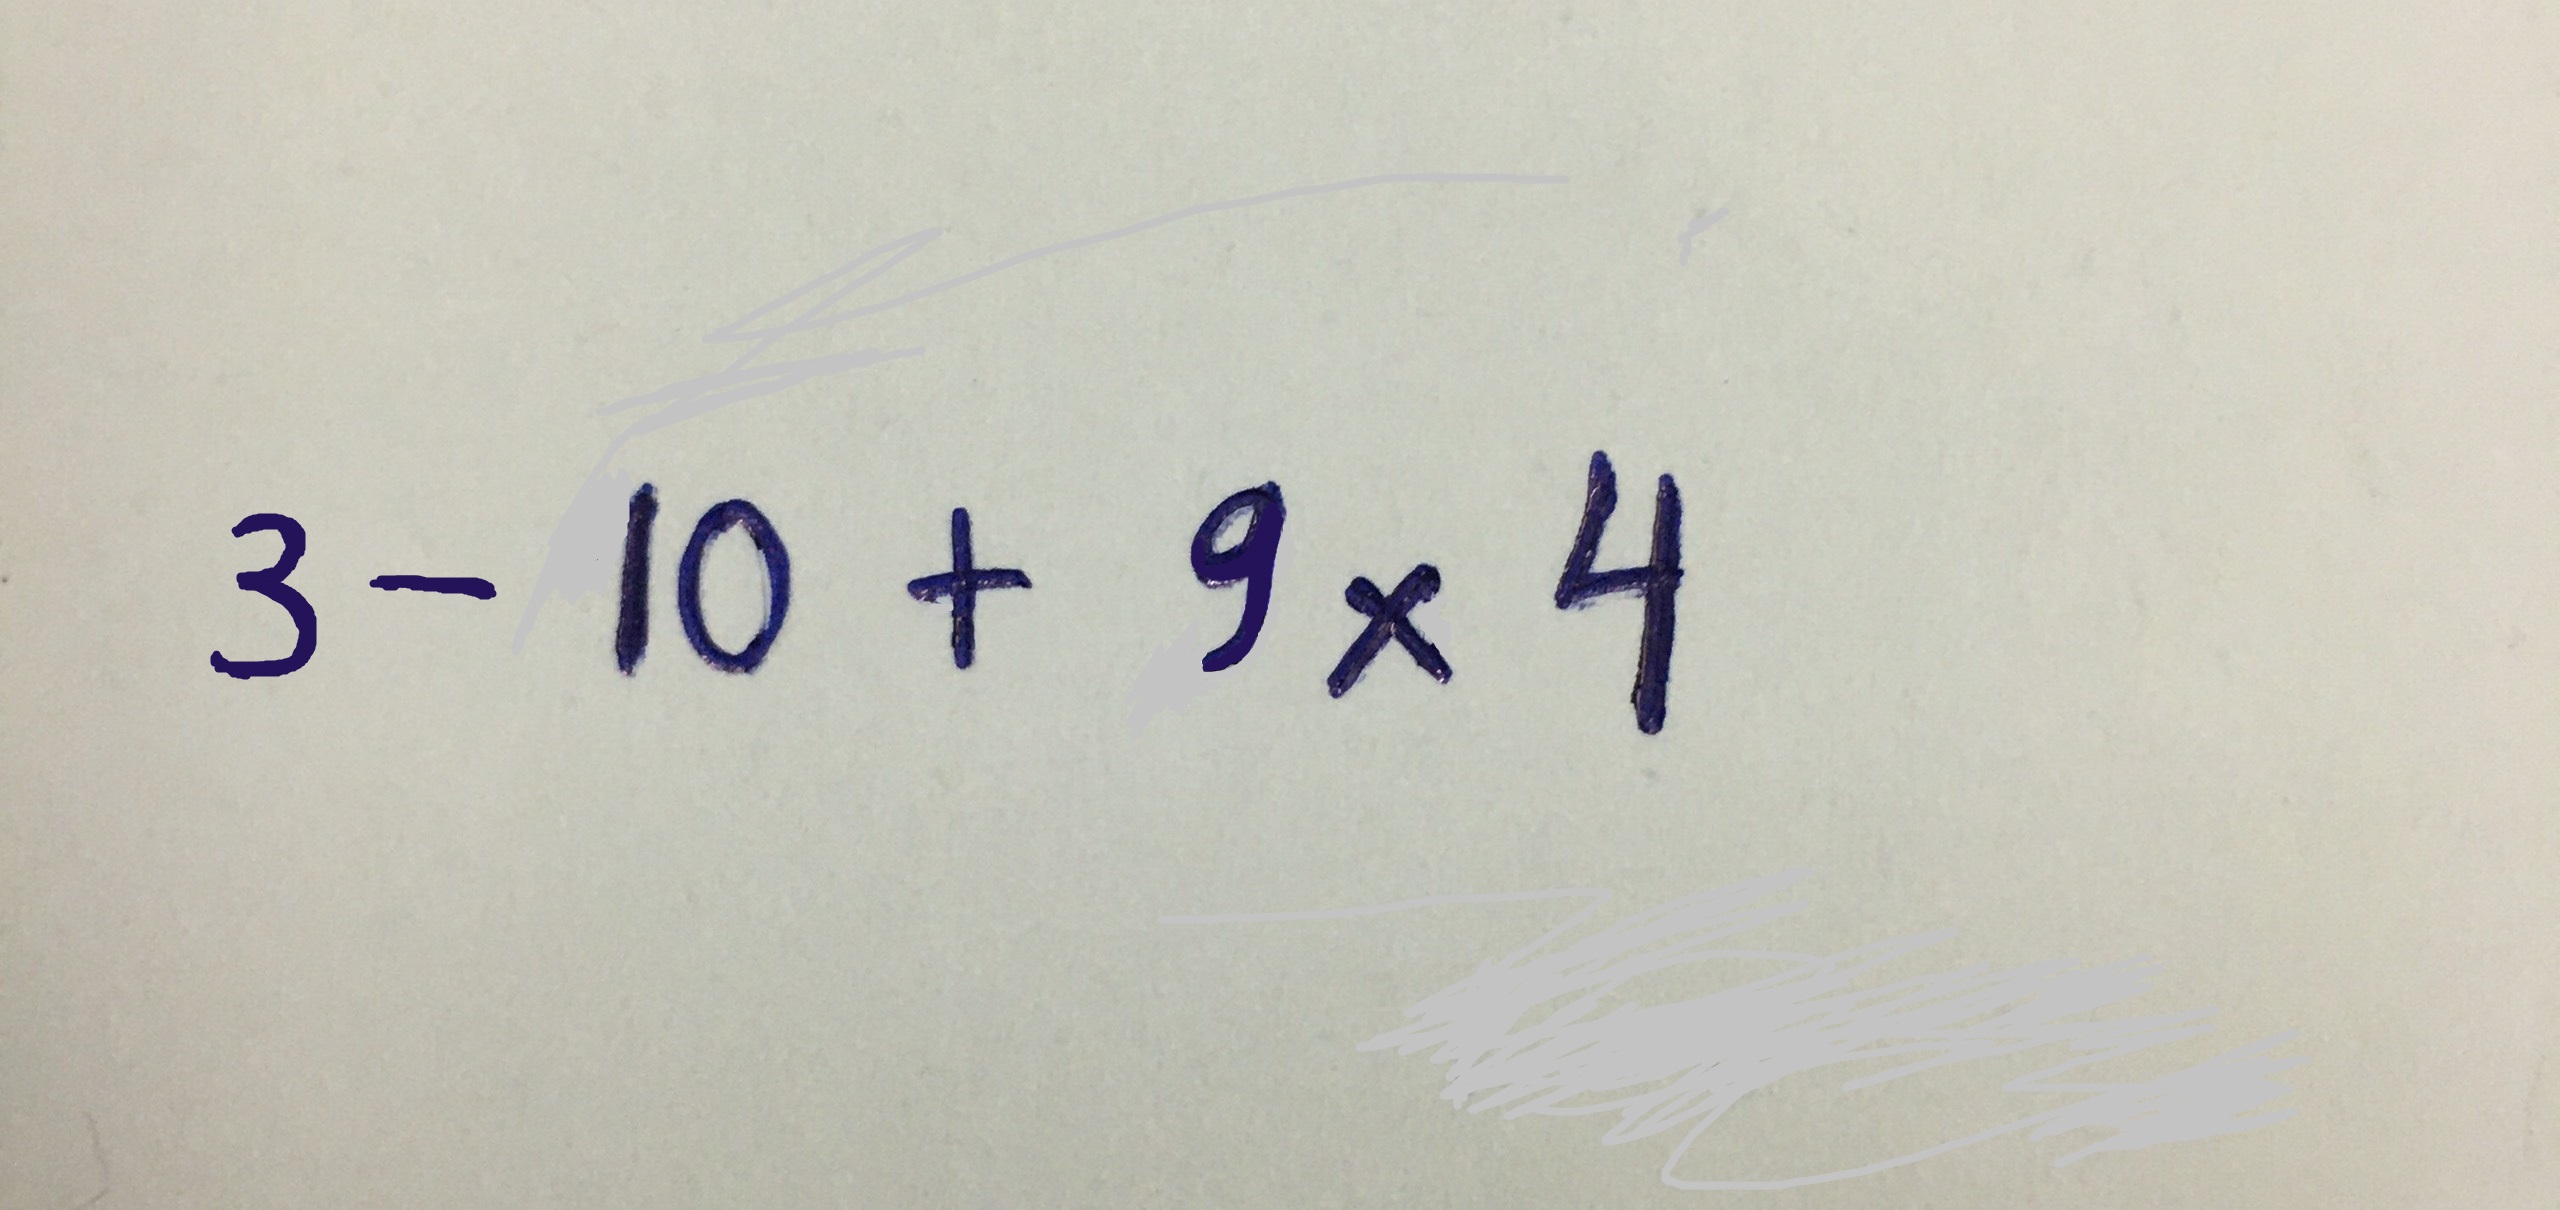 3 - 10 + 9 × 4